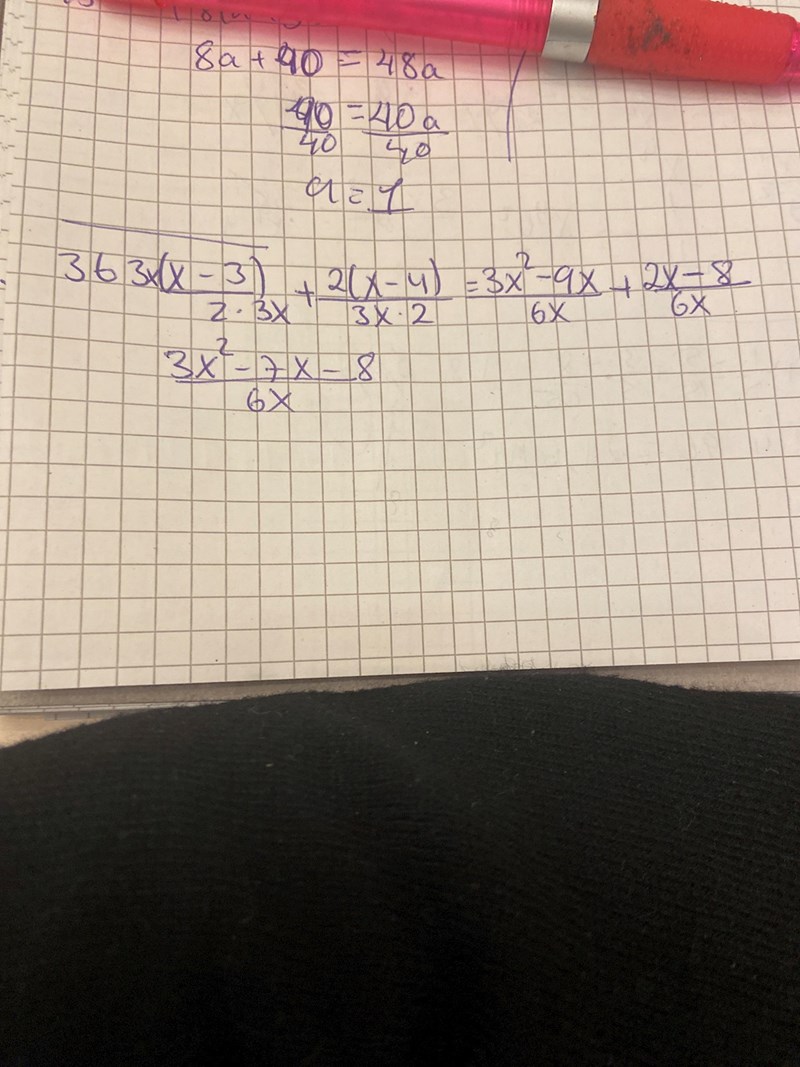 8a + 40 = 48a
40/40 = 40a/40
a = 1
363 3x(x - 3)/2 · 3x + 2(x - 4)/3x · 2 = 3x² - 9x/6x + 2x - 8/6x
3x² - 7x - 8/6x